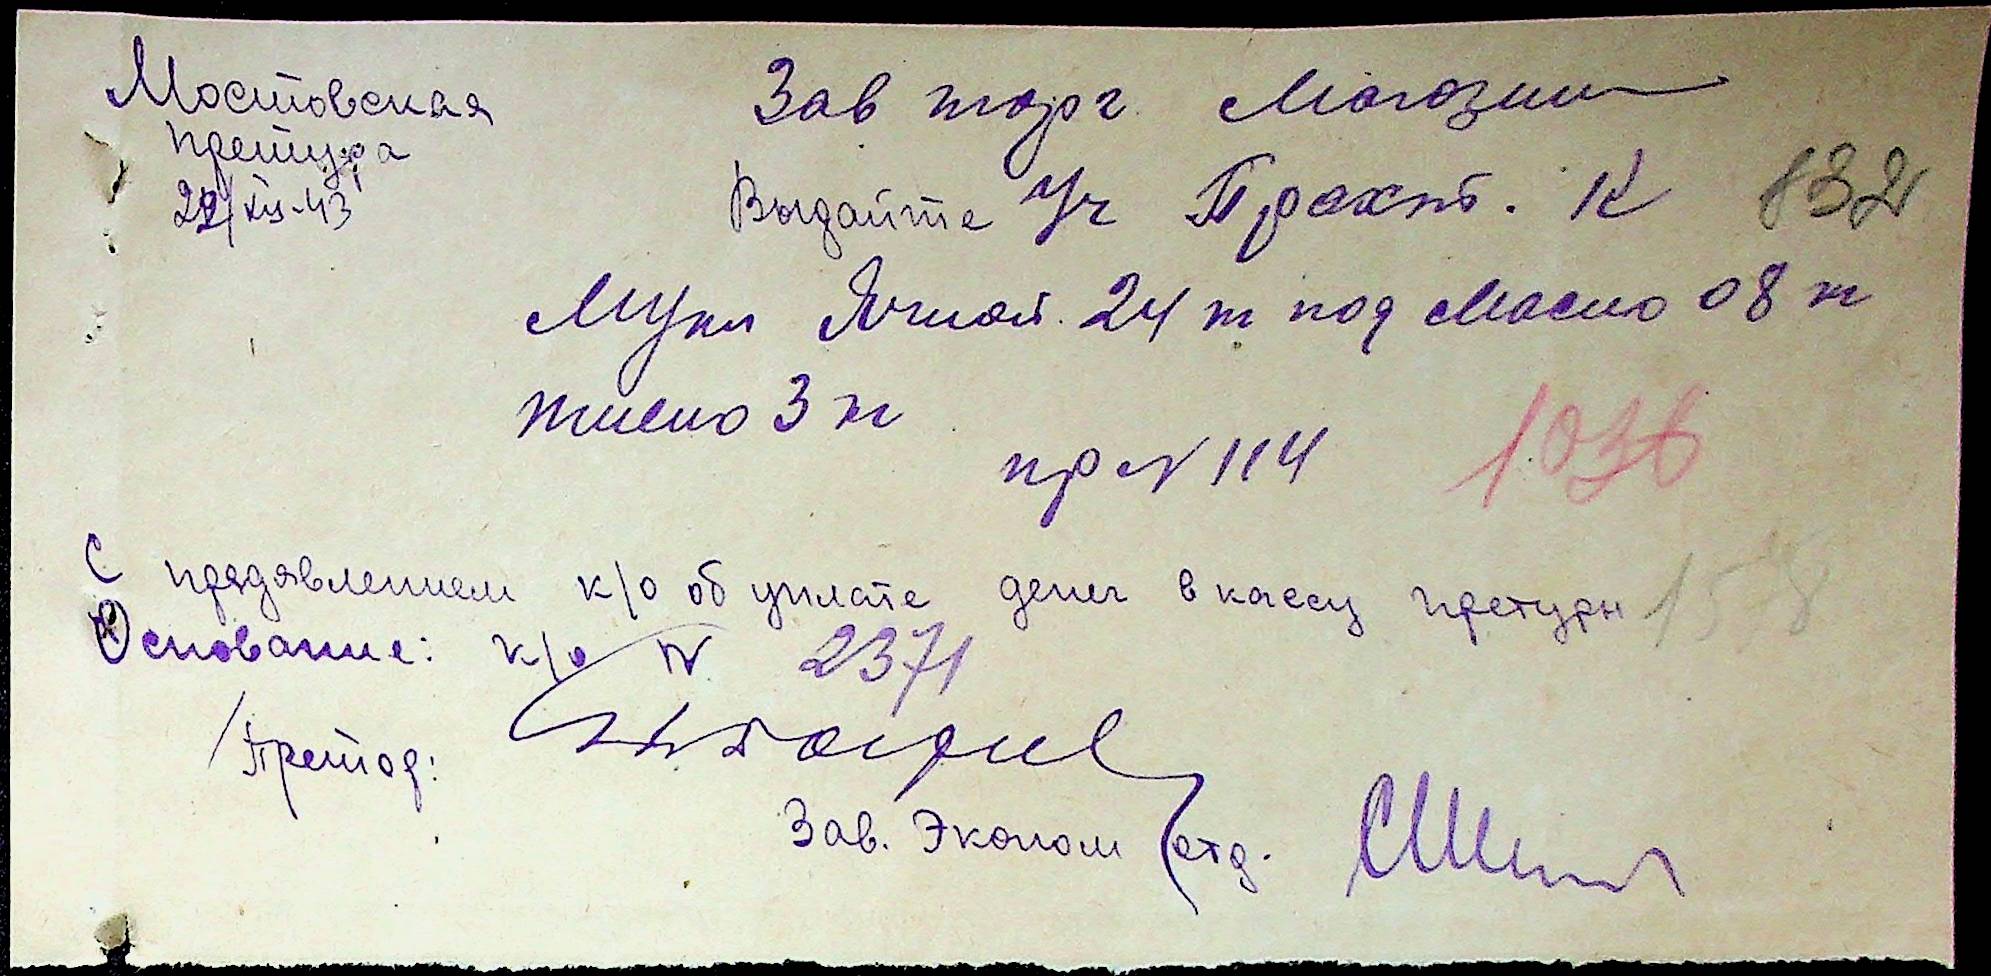 Мостовская
претура
22/XII-43
Зав торг. Магазин
Выдайте Уч Практ. К 832
Муки Ячной. 24 кг под Масло 08 кг
Пшено 3 кг
пр N 114
1036
С предявлением к/о об уплате денег в кассу претуры
158
Основание: к/о N 2371
Претор:
Зав. Эконом отд.